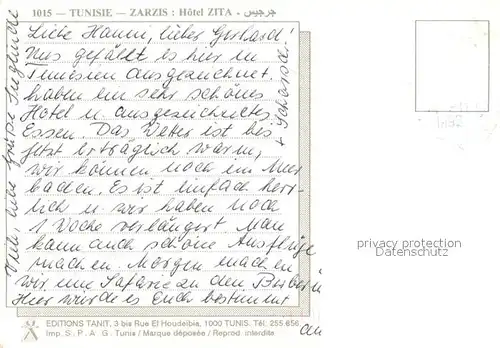 1015 — TUNISIE — ZARZIS : Hôtel ZITA - جرجيس
Liebe Hanni, lieber Gerhard!
Uns gefällt es hier in
Tunesien ausgezeichnet.
haben ein sehr schönes
Hotel u. ausgezeichnetes
Essen. Das Wetter ist bis
jetzt erträglich warm,
wir können noch im Meer
baden. Es ist einfach herr-
lich u. wir haben noch
1 Woche verlängert. Man
kann auch schöne Ausflüge
machen. Morgen machen
wir eine Safarie zu den Berbern
Hier würde es Euch bestimmt
Viele, liebe Grüße Sieglinde
+ Schorsch.
privacy protection
Datenschutz
EDITIONS TANIT, 3 bis Rue El Houdelbia, 1000 TUNIS. Tél. 255 656
Imp. S. P. A. G. Tunis / Marque déposée / Reprod. interdite